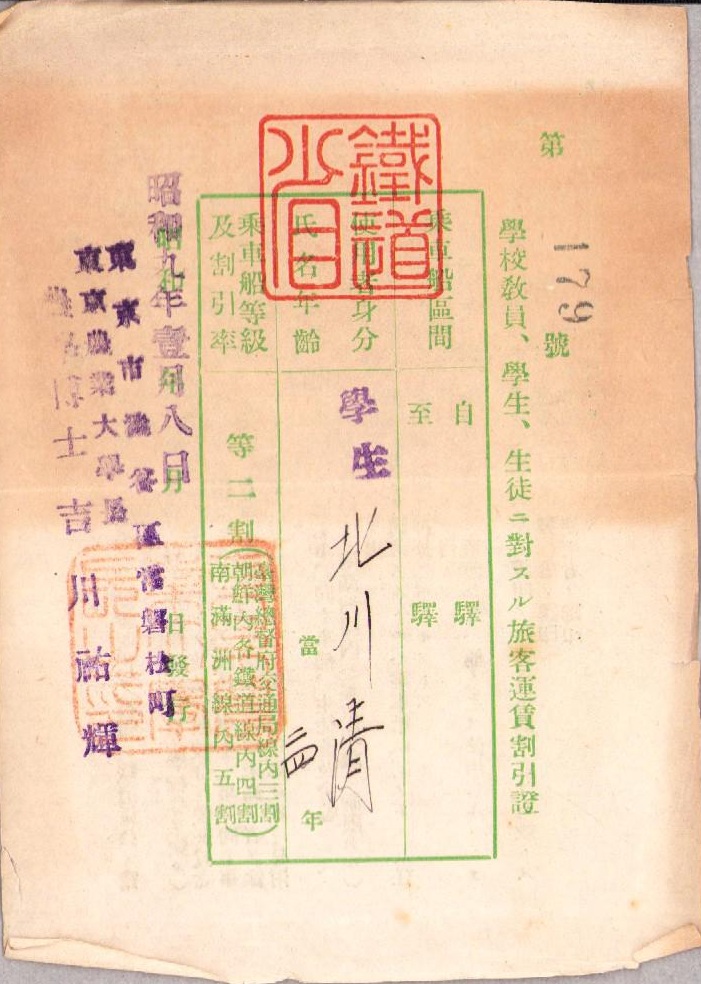 第 179 號
學校敎員、學生、生徒ニ對スル旅客運賃割引證
鐵道
省
乘車船區間
自 驛
至 驛
使用者身分
學生
氏名年齡
北川清
當 年
乘車船等級
及割引率
等二割
臺灣總督府交通局線內三割
朝鮮內各鐵道線內四割
南滿洲線內五割
昭和 年 月 日發行
昭和九年壹月八日
東京市澁谷區常磐松町
東京農業大學長
農學博士吉川祐輝